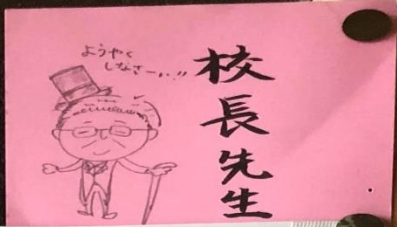 ようやく
しなさーい!!
校長先生